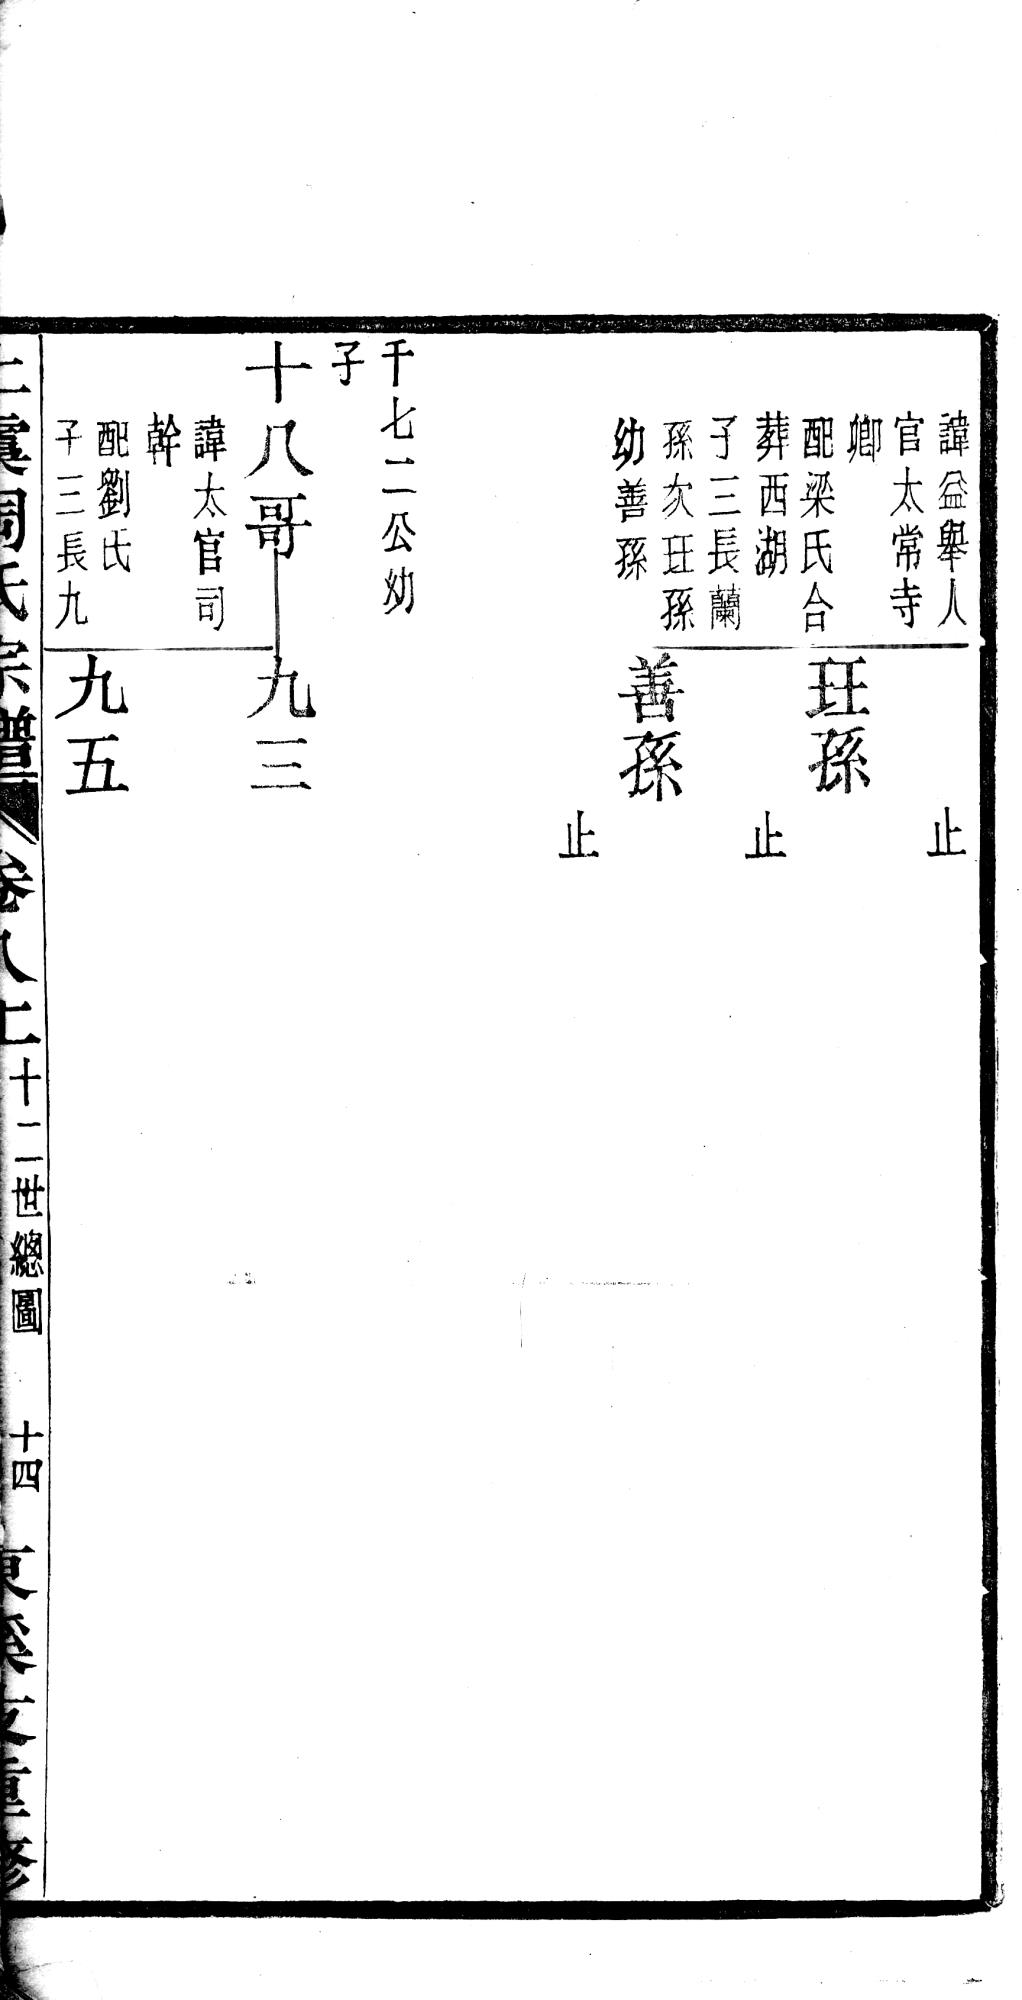 諱益舉人
官太常寺
卿
配梁氏合
葬西湖
子三長蘭
孫次玨孫
幼善孫
止
玨孫
止
善孫
止
千七二公幼
子
十八哥
九三
諱太官司
幹
配劉氏
子三長九
九五
上虞周氏宗譜
卷八上
十二世總圖
十四
重修